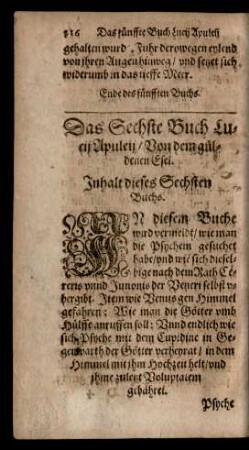 316 Das fünffte Buch Lucij Apuleij
gehalten wurd / Fuhr derowegen eylend
von ihren Augen hinweg / und setzet sich
widerumb in das tieffe Meer.
Ende des fünfften Buchs.
Das Sechste Buch Lu-
cij Apuleij / Von dem gül-
denen Esel.
Inhalt dieses Sechsten
Buchs.
IN diesem Buche
wird vermeldt / wie man
die Psychein gesuchet
habe / und wie sich diesel-
bige nach dem Rath Ce-
reris unnd Junonis der Veneri selbst v-
bergibt. Item wie Venus gen Himmel
gefahren: Wie man die Götter umb
Hülffe anruffen soll: Unnd endlich wie
sich Psyche mit dem Cupidine in Ge-
genwarth der Götter verheyrat / in dem
Himmel mit ihm Hochzeit helt / und
ihme zuletzt Voluptatem
gebähret.
Psyche